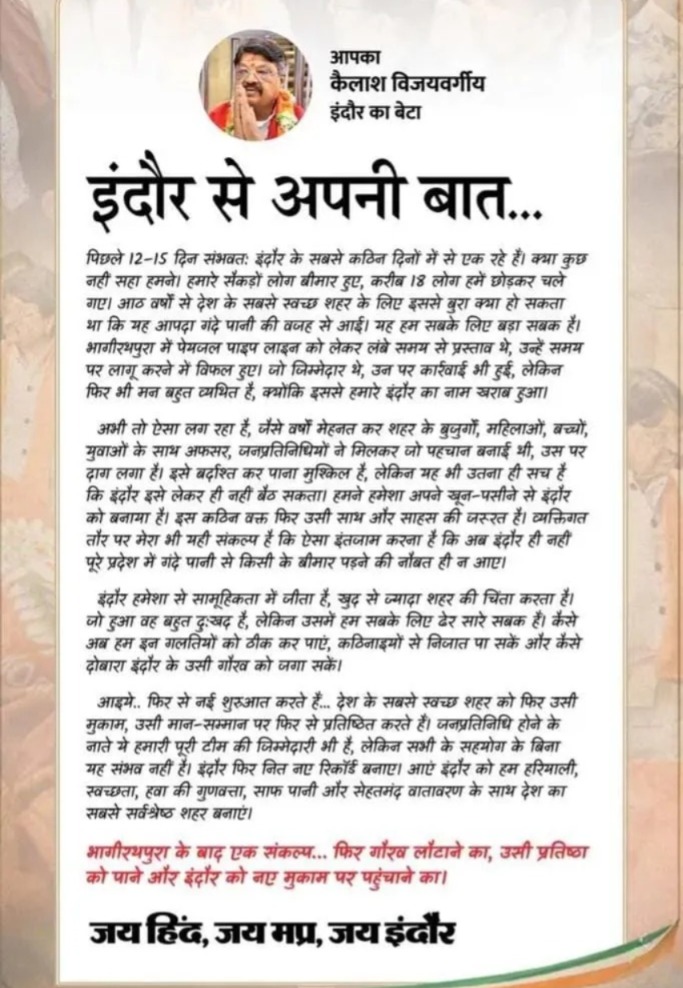 आपका
कैलाश विजयवर्गीय
इंदौर का बेटा
इंदौर से अपनी बात...
पिछले 12-15 दिन संभवत: इंदौर के सबसे कठिन दिनों में से एक रहे हैं। क्या कुछ
नहीं सहा हमने। हमारे सैकड़ों लोग बीमार हुए, करीब 18 लोग हमें छोड़कर चले
गए। आठ वर्षों से देश के सबसे स्वच्छ शहर के लिए इससे बुरा क्या हो सकता
था कि यह आपदा गंदे पानी की वजह से आई। यह हम सबके लिए बड़ा सबक है।
भागीरथपुरा में पेयजल पाइप लाइन को लेकर लंबे समय से प्रस्ताव थे, उन्हें समय
पर लागू करने में विफल हुए। जो जिम्मेदार थे, उन पर कार्रवाई भी हुई, लेकिन
फिर भी मन बहुत व्यथित है, क्योंकि इससे हमारे इंदौर का नाम खराब हुआ।
अभी तो ऐसा लग रहा है, जैसे वर्षों मेहनत कर शहर के बुजुर्गों, महिलाओं, बच्चों,
युवाओं के साथ अफसर, जनप्रतिनिधियों ने मिलकर जो पहचान बनाई थी, उस पर
दाग लगा है। इसे बर्दाश्त कर पाना मुश्किल है, लेकिन यह भी उतना ही सच है
कि इंदौर इसे लेकर ही नहीं बैठ सकता। हमने हमेशा अपने खून-पसीने से इंदौर
को बनाया है। इस कठिन वक्त फिर उसी साथ और साहस की जरूरत है। व्यक्तिगत
तौर पर मेरा भी यही संकल्प है कि ऐसा इंतजाम करना है कि अब इंदौर ही नहीं
पूरे प्रदेश में गंदे पानी से किसी के बीमार पड़ने की नौबत ही न आए।
इंदौर हमेशा से सामूहिकता में जीता है, खुद से ज्यादा शहर की चिंता करता है।
जो हुआ वह बहुत दुःखद है, लेकिन उसमें हम सबके लिए ढेर सारे सबक हैं। कैसे
अब हम इन गलतियों को ठीक कर पाएं, कठिनाइयों से निजात पा सकें और कैसे
दोबारा इंदौर के उसी गौरव को जगा सकें।
आइये.. फिर से नई शुरुआत करते हैं... देश के सबसे स्वच्छ शहर को फिर उसी
मुकाम, उसी मान-सम्मान पर फिर से प्रतिष्ठित करते हैं। जनप्रतिनिधि होने के
नाते ये हमारी पूरी टीम की जिम्मेदारी भी है, लेकिन सभी के सहयोग के बिना
यह संभव नहीं है। इंदौर फिर नित नए रिकॉर्ड बनाए। आएं इंदौर को हम हरियाली,
स्वच्छता, हवा की गुणवत्ता, साफ पानी और सेहतमंद वातावरण के साथ देश का
सबसे सर्वश्रेष्ठ शहर बनाएं।
भागीरथपुरा के बाद एक संकल्प... फिर गौरव लौटाने का, उसी प्रतिष्ठा
को पाने और इंदौर को नए मुकाम पर पहुंचाने का।
जय हिंद, जय मप्र, जय इंदौर